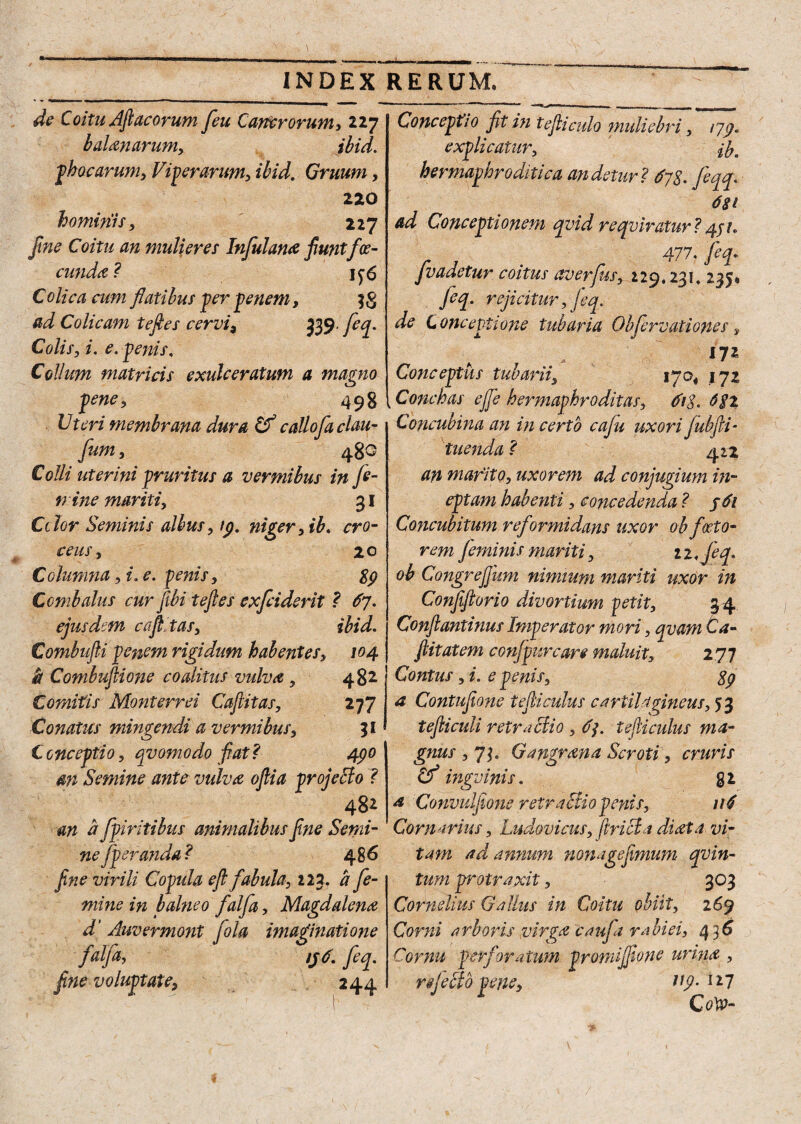 INDEX RERUM.
de Coitu Astacorum seu Cancrorum, 227
balænarum, ibid.
phocarum, Viperarum, ibid. Gruum,
220
hominis, 227
sine Coitu an mulieres Insulanæ fiunt fœ-
cundæ? 156
Colica cum flatibus per penem, 38
ad Colicam testes cervi, 339. seq.
Colis, i. e. penis.
Collum matricis exulceratum a magno
pene, 498
Uteri membrana dura & callosa clau-
sum, 480
Colli uterini pruritus a vermibus in se-
mine mariti, 31
Color Seminis albus, 19. niger, ib. cro-
ceus, 20
Columna, i. e. penis, 89
Combalus cur sibi testes exsciderit? 67.
ejusdem castitas, ibid.
Combusti penem rigidum habentes, 104
à Combustione coalitus vulvæ, 482
Comitis Monterrei Castitas, 277
Conatus mingendi a vermibus, 31
Conceptio, qvomodo fiat? 490
an Semine ante vulvæ ostia projecto?
482
an à spiritibus animalibus sine Semi-
ne speranda? 486
sine virili Copula est fabula, 223. à se-
mine in balneo falsa, Magdalenæ
d' Auvermont sola imaginatione
falsa, 156. seq.
sine voluptate, 244
Conceptio fit in testiculo muliebri, 179.
explicatur, ib.
hermaphroditica an detur? 678. seqq.
681
ad Conceptionem qvid reqviratur? 451.
477. seq.
svadetur coitus aversus, 229. 231. 235.
seq. rejicitur, seq.
de Conceptione tubaria Observationes,
172
Conceptus tubarii, 170. 172
Conchas esse hermaphroditas, 618. 682
Concubina an in certo casu uxori substi-
tuenda? 422
an marito, uxorem ad conjugium in-
eptam habenti, concedenda? 561
Concubitum reformidans uxor ob fœto-
rem seminis mariti, 22. seq.
ob Congressum nimium mariti uxor in
Consistorio divortium petit, 34
Constantinus Imperator mori, qvam Ca-
stitatem conspurcare maluit, 277
Contus, i. e penis, 89
a Contusione testiculus cartilagineus, 53
testiculi retractio, 63. testiculus ma-
gnus, 73. Gangræna Scroti, cruris
& ingvinis. 82
a Convulsione retractio penis, 116
Cornarius, Ludovicus, stricta diæta vi-
tam ad annum nonagesimum qvin-
tum protraxit, 303
Cornelius Gallus in Coitu obiit, 269
Corni arboris virgæ causa rabiei, 436
Cornu perforatum promissione urinæ,
resecto pene, 119. 127